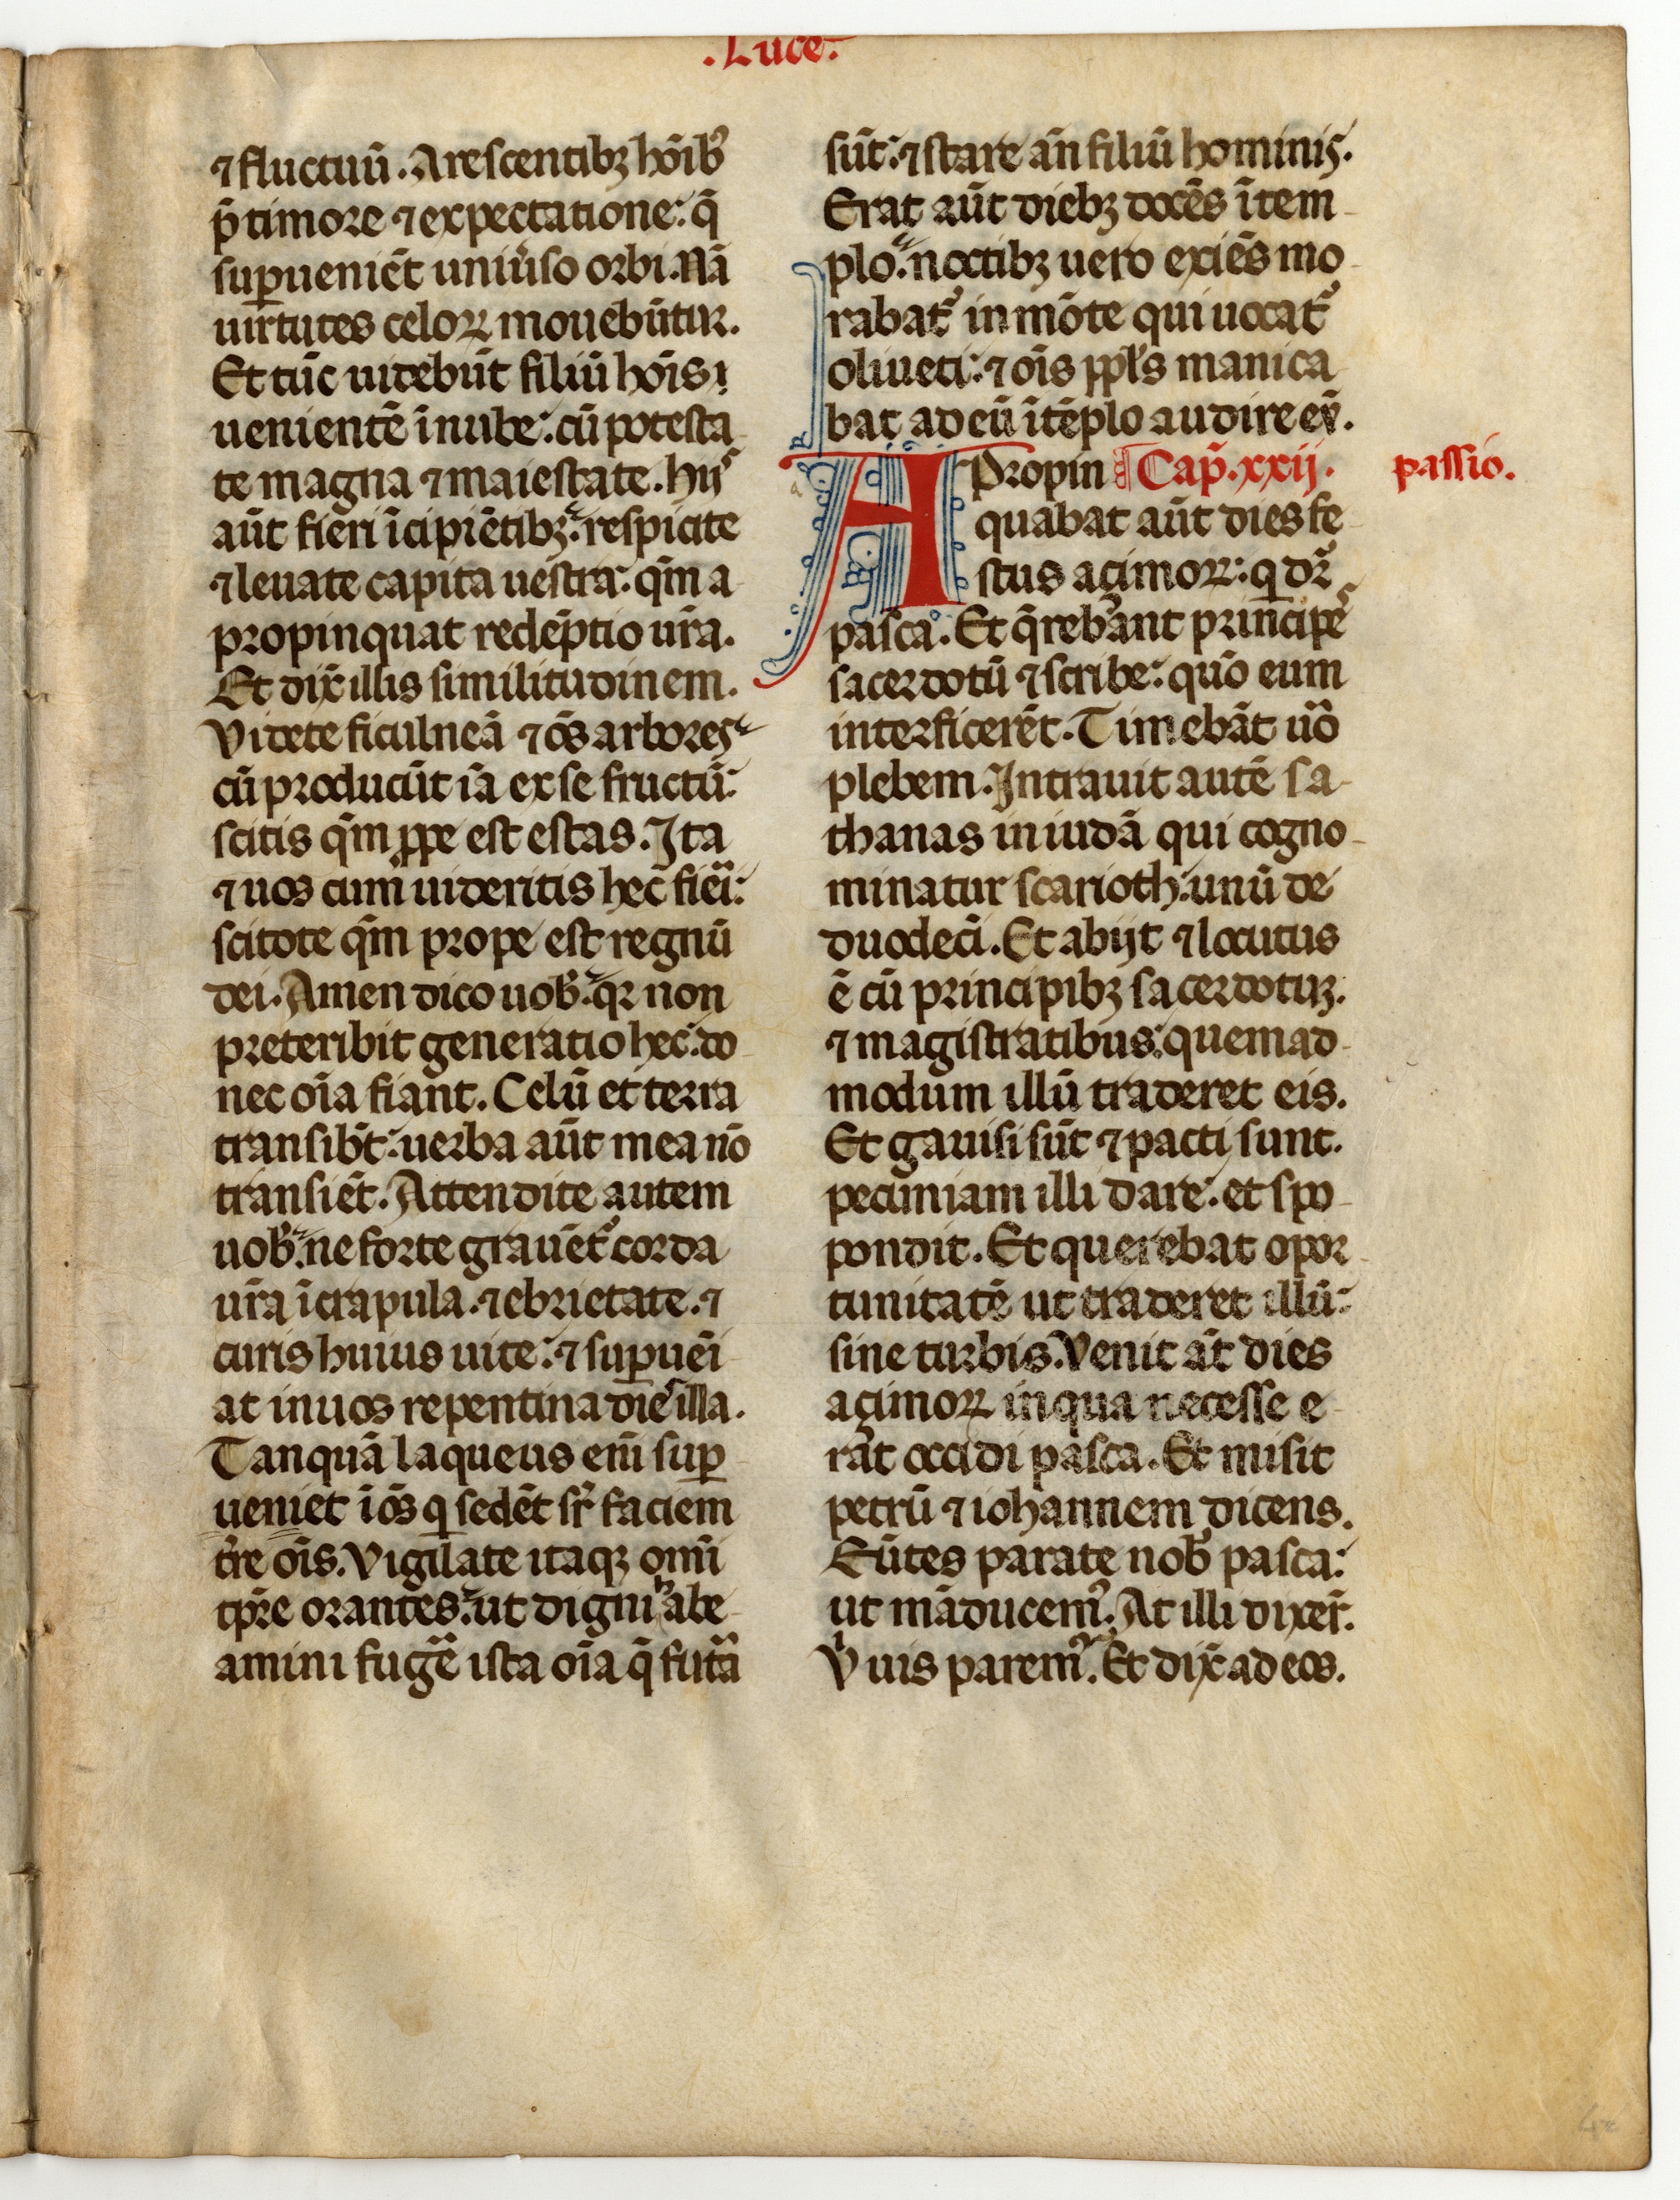 .Luce.
⁊ fluctuū. Arescentibꝫ hōibꝰ
p̄ timore ⁊ expectatione: q̄
suꝑueniēt uniu̾so orbi. Nā
uirtutes celoꝝ mouebūtur.
Et tūc uidebūt filiū hōis:
uenientē ī nube: cū potesta
te magna ⁊ maiestate. hijs
aūt fieri īcipiētibꝫ: respicite
⁊ leuate capita uestra: qm̄ a
propinquat redēptio ur̄a.
Et dix̄ illis similitudinem.
Videte ficulneā ⁊ oēs arbores:
cū producūt iā ex se fructū:
scitis qm̄ ꝓpe est estas. Ita
⁊ uos cum uideritis hec fieri:
scitote qm̄ prope est regnū
dei. Amen dico uob̄: qꝛ non
preteribit generatio hec: do
nec oīa fiant. Celū et terra
transibt̄: uerba aūt mea nō
transiēt. Attendite autem
uob̄: ne forte grauēt᷑ corda
ur̄a ī crapula. ⁊ ebrietate. ⁊
curis huius uite: ⁊ suꝑuēi
at in uos repentina dies illa.
Tanquā laqueus eni̅ suꝑ
ueniet ī oēs q̇ sedēt sr̄ faciem
tr̄e oīs. Vigilate itaqꝫ omī
tp̄re orantes: ut digni hab̾e
amini fug̾e ista oīa q̄ futᵃa
sūt: ⁊ stare añ filiū hominis.
Erat aūt diebꝫ docēs ī tem
plo: noctibꝫ uero exiēs mo
rabat᷑ in mōte qui uocat᷑
oliueti: ⁊ oīs ppl̄s manica
bat ad eū ī tēplo audire eū.
APropin Cap̄. xxij. passio.
quabat aūt dies fe
stus açimoꝝ: q̇ dr̄
pasca. Et q̄rebant principes
sacerdotū ⁊ scribe: quō eum
interficerēt. Timebāt uo̊
plebem. Intrauit autē sa
thanas in iudā qui cogno
minatur scarioth: unū de
duodeci̅. Et abijt ⁊ locutus
ē cū principibꝫ sacerdotuꝫ.
⁊ magistratibus: quemad
modum illū traderet eis.
Et gauisi sūt ⁊ pacti sunt.
pecuniam illi dare: et spo
pondit. Et querebat opor
tunitatē ut traderet illū:
sine turbis. Venit āt dies
açimoꝝ in qua necesse e
rat occidi pasca. Et misit
petrū ⁊ iohannem dicens.
Eūtes parate nob̄ pasca:
ut māducemꝰ. At illi dixer̄.
Vᵇ uis paremꝰ. Et dix̄ ad eos.